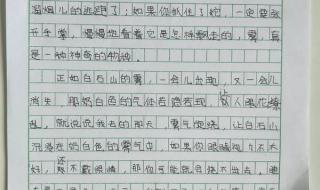 溜烟儿的逃跑了；如果你抓住了它，一定要张
开手掌，慢慢地看看它是怎样飘走的，雾，真
是一种神奇的物种。
正如白石山的雾，一会儿出现，又一会儿
消失，那奶白色的气体去隐若现，让人眼花缭
乱，就说说我去的那天，雾气缭绕，让白石山
沉浸在奶白色的雾气中，如果你眼睛视力不太
好，还不戴眼睛，那你可能就会找不出去，